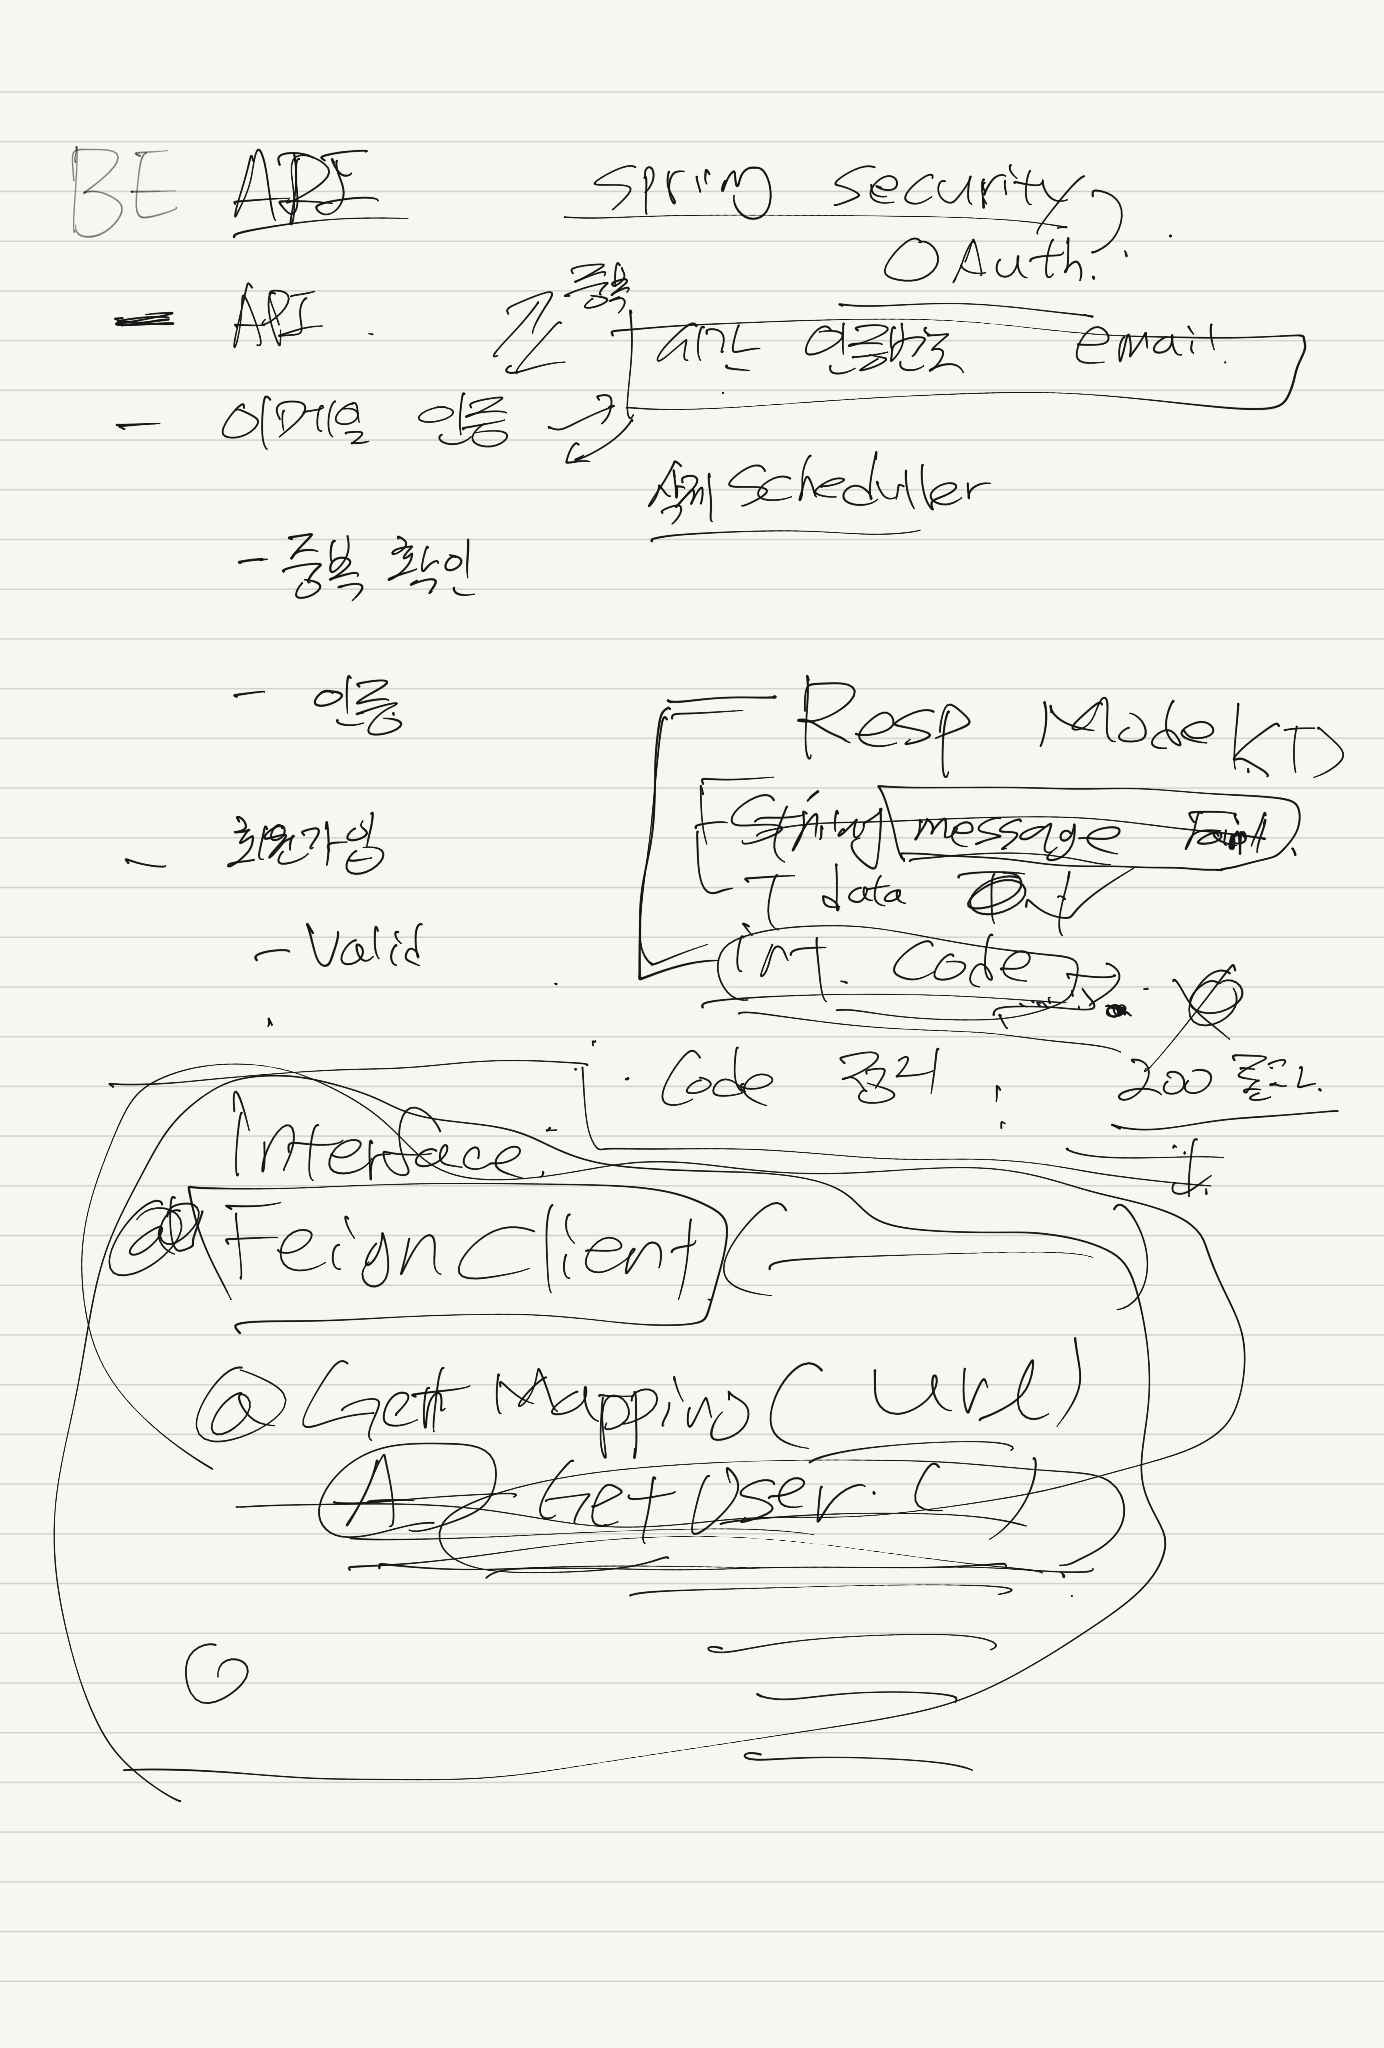 BE API spring security
OAuth.
- API 중복
시간 인증번호 email
- 이메일 인증
삭제 Scheduller
- 중복 확인
- 인증
Resp Model<T>
- 회원가입
String message
T data
- Valid
int code
Code 정리 200
Interface
@FeignClient ( )
@GetMapping ( Url )
A GetUser ( )